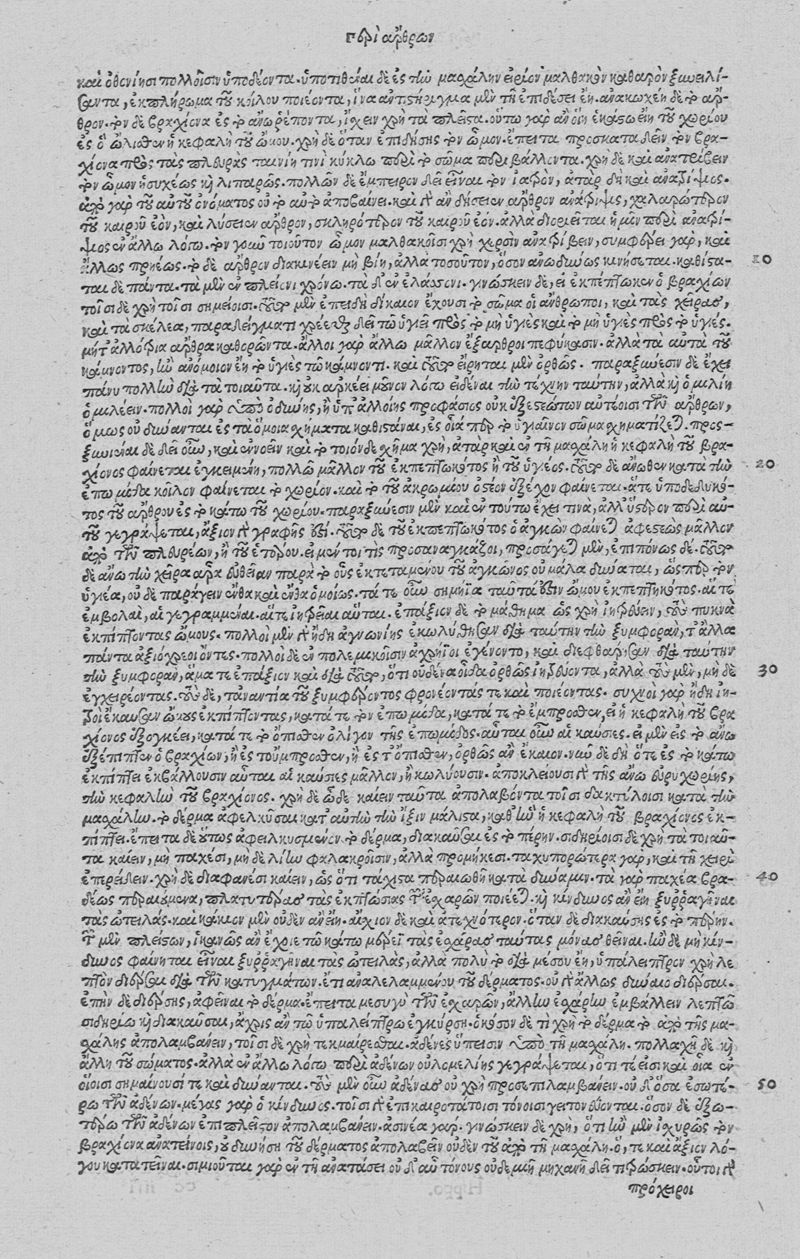 περὶ ἄρθρων
καὶ ὀθονίῃσι πολλοῖσιν ὑποδέονται. ὑποτιθέναι δὲ ἐς τὴν μασχάλην εἰρίον μαλθακὸν καθαρὸν ξυνειλί-
σοντα, ἐκπλήρωμα τοῦ κοίλου ποιέοντα, ἵνα ἀντιστήριγμα μὲν τῇ ἐπιδέσει ἔῃ. ἀνακωχέῃ δὲ τὸ ἄρ-
θρον. τὸν δὲ βραχίονα ἐς τὸ ἄνω ῥέποντα, ἴσχειν χρὴ τὰ πλεῖστα. οὕτω γὰρ ἂν ἑκαστάτω εἴη τοῦ χωρίου
ἐς ὃ ὤλισθεν ἡ κεφαλὴ τοῦ ὤμου. χρὴ δὲ ὅταν ἐπιδήσῃς τὸν ὦμον. ἔπειτα προσκαταδεῖν τὸν βρα-
χίονα πρὸς τὰς πλευρὰς ταινίῃ τινὶ κύκλῳ περὶ τὸ σῶμα περιβάλλοντα. χρὴ δὲ καὶ ἀνατρίβειν
τὸν ὦμον ἡσυχέως καὶ λιπαρῶς. πολλῶν δὲ ἔμπειρον δεῖ εἶναι τὸν ἰητρὸν, ἀτὰρ δὴ καὶ ἀνατρίψιος.
ἀπὸ γὰρ τοῦ αὐτοῦ ὀνόματος οὐ τὸ αὐτὸ ἀποβαίνει. καὶ γὰρ ἂν δήσειεν ἄρθρον ἀνάτριψις, χαλαρώτερον
τοῦ καιροῦ ἐὸν, καὶ λύσειεν ἄρθρον, σκληρότερον τοῦ καιροῦ ἐόν. ἀλλὰ διοριεῖται ἡμῖν περὶ ἀνατρί-
ψιος ἐν ἄλλῳ λόγῳ. τὸν γοῦν τοιοῦτον ὦμον μαλθακοῖσι χρὴ χερσὶν ἀνατρίβειν, συμφέρει γὰρ, καὶ
ἄλλως πρηέως. τὸ δὲ ἄρθρον διακινέειν μὴ βίῃ, ἀλλὰ τοσοῦτον, ὅσον ἀνωδύνως κινήσεται. καθίστα- 10
ται δὲ πάντα. τὰ μὲν ἐν πλείονι χρόνῳ. τὰ δ᾽ ἐν ἐλάσσονι. γινώσκειν δὲ, εἰ ἐκπέπτωκεν ὁ βραχίων
τοῖσι δὲ χρὴ τοῖσι σημείοισι. τοῦτο μὲν ἐπειδὴ δίκαιον ἔχουσι τὸ σῶμα οἱ ἄνθρωποι, καὶ τὰς χεῖρας,
καὶ τὰ σκέλεα, παραδείγματι χρέεσθαι δεῖ τῷ ὑγιεῖ πρὸς τὸ μὴ ὑγιὲς καὶ τὸ μὴ ὑγιὲς πρὸς τὸ ὑγιές.
μήτ᾽ ἀλλότρια ἄρθρα καθορῶντα. ἄλλοι γὰρ ἄλλων μᾶλλον ἔξαρθροι πεφύκασιν. ἀλλὰ τὰ αὐτὰ τοῦ
κάμνοντος, ἢν ἀνόμοιον ἔῃ τὸ ὑγιὲς τῷ κάμνοντι. καὶ τοῦτο εἴρηται μὲν ὀρθῶς. παραξύνεσιν δὲ ἔχει
πάνυ πολλὴν διὰ τὰ τοιαῦτα. καὶ οὐκ ἀρκέει μοῦνον λόγῳ εἰδέναι τὴν τέχνην ταύτην, ἀλλὰ καὶ ὁμιλίῃ
ὁμιλέειν. πολλοὶ γὰρ ὑπὸ ὀδύνης, ἢ ὑπ᾽ ἀλλοίης προφάσιος οὐκ ἐξεστεώτων αὐτέοισι τῶν ἄρθρων,
ὅμως οὐ δύνανται ἐς τὰ ὅμοια σχήματα καθιστάναι, ἐς οἷά περ τὸ ὑγιαῖνον σῶμα σχηματίζεται. προσ-
ξυνιέναι δὲ δεῖ οὖν, καὶ ἐννοεῖν καὶ τὸ τοιόνδε σχῆμα χρὴ, ἀτὰρ καὶ ἐν τῇ μασχάλῃ ἡ κεφαλὴ τοῦ βρα-
χίονος φαίνεται ἐγκειμένη, πολλῷ μᾶλλον τοῦ ἐκπεπτωκότος ἢ τοῦ ὑγιέος. τοῦτο δὲ ἄνωθεν κατὰ τὴν 20
ἐπωμίδα κοῖλον φαίνεται τὸ χωρίον. καὶ τὸ τοῦ ἀκρωμίου ὀστέον ἐξέχον φαίνεται. ἅτε ὑποδεδυκό-
τος τοῦ ἄρθρου ἐς τὸ κάτω τοῦ χωρίου. παραξύνεσιν μὲν καὶ ἐν τούτῳ ἔχει τινὰ, ἀλλ᾽ ὕστερον περὶ αὐ-
τοῦ γεγράψεται, ἄξιον γὰρ γραφῆς ἐστι. τοῦτο δὲ τοῦ ἐκπεπτωκότος ὁ ἀγκὼν φαίνεται ἀφεστεὼς μᾶλλον
ἀπὸ τῶν πλευρέων, ἢ τοῦ ἑτέρου. εἰ μέντοι τις προσαναγκάζοι, προσάγεται μὲν, ἐπιπόνως δέ. τοῦτο
δὲ ἄνω τὴν χεῖρα ἆραι εὐθεῖαν παρὰ τὸ οὖς ἐκτεταμένου τοῦ ἀγκῶνος οὐ μάλα δύναται, ὥσπερ τὴν
ὑγιέα, οὐδὲ παράγειν ἔνθα καὶ ἔνθα ὁμοίως. τά τε οὖν σημήϊα ταῦτά ἐστιν ὤμου ἐκπεπτηκότος. αἵ τε
ἐμβολαὶ, αἱ γεγραμμέναι. αἵ τε ἰητρεῖαι αὗται. ἐπάξιον δὲ τὸ μάθημα ὡς χρὴ ἰητρεύειν, τοὺς πυκνὰ
ἐκπίπτοντας ὤμους. πολλοὶ μὲν γὰρ ἤδη ἀγωνίης ἐκωλύθησαν διὰ ταύτην τὴν ξυμφορὰν, τ᾽ ἄλλα
πάντα ἀξιόχρεοι ὄντες. πολλοὶ δὲ ἐν πολεμικοῖσιν ἀχρῆϊοι ἐγένοντο, καὶ διεφθάρησαν διὰ ταύτην
τὴν ξυμφορὰν, ἅμα τε ἐπάξιον καὶ διὰ τοῦτο, ὅτι οὐδένα οἶδα ὀρθῶς ἰητρεύοντα, ἀλλὰ τοὺς μὲν, μὴ δὲ 30
ἐγχειρέοντας. τοὺς δὲ, τἀναντία τοῦ ξυμφέροντος φρονέοντάς τε καὶ ποιέοντας. συχνοὶ γὰρ ἤδη ἰη-
τροὶ ἔκαυσαν ὤμους ἐκπίπτοντας, κατά τε τὴν ἐπωμίδα, κατά τε τὸ ἔμπροσθεν, εἰ ἡ κεφαλὴ τοῦ βρα
χίονος ἐξογκέει, κατά τε τὸ ὄπισθεν ὀλίγον τῆς ἐπωμίδος. αὗται οὖν αἱ καύσιες. εἰ μὲν ἐς τὸ ἄνω
ἐξέπιπτεν ὁ βραχίων, ἢ ἐς τοὔμπροσθεν, ἢ ἐς τοὔπισθεν, ὀρθῶς ἂν ἔκαιον. νῦν δὲ δὴ ὅτε ἐς τὸ κάτω
ἐκπίπτει ἐκβάλλουσιν αὗται αἱ καύσιες μᾶλλον, ἢ κωλύουσιν. ἀποκλείουσι γὰρ τῆς ἄνω εὐρυχωρίης,
τὴν κεφαλὴν τοῦ βραχίονος. χρὴ δὲ ὧδε καίειν ταῦτα ἀπολαβόντα τοῖσι δακτύλοισι κατὰ τὴν
μασχάλην. τὸ δέρμα ἀφελκύσαι κατ᾽ αὐτὴν τὴν ἴξιν μάλιστα, καθ᾽ ἣν ἡ κεφαλὴ τοῦ βραχίονος ἐκ-
πίπτει. ἔπειτα δὲ οὕτως ἀφειλκυσμένον τὸ δέρμα, διακαῦσαι ἐς τὸ πέρην. σιδηρίοισι δὲ χρὴ τὰ τοιαῦ-
τα καίειν, μὴ παχέσι, μὴ δὲ λίην φαλακροῖσιν, ἀλλὰ προμήκεσι. ταχυπορώτερα γὰρ, καὶ τῇ χειρὶ
ἐπερείδειν. χρὴ δὲ διαφανέσι καίειν, ὡς ὅτι τάχιστα περαιωθῇ κατὰ δύναμιν. τὰ γὰρ παχέα βρα- 40
δέως περαιούμενα, πλατυτέρας τὰς ἐκπτώσιας τῶν ἐσχαρῶν ποιέεται. καὶ κίνδυνος ἂν εἴη ξυρραγῆναι
τὰς ὠτειλάς. καὶ κάκιον μὲν οὐδὲν ἂν εἴη. αἴσχιον δὲ καὶ ἀτεχνότερον. ὅταν δὲ διακαύσῃς ἐς τὸ πέρην.
τῶν μὲν πλείστων, ἱκανῶς ἂν ἔχοι ἐν τῷ κάτω μέρει τὰς ἐσχάρας ταύτας μόνας θεῖναι. ἢν δὲ μὴ κίν-
δυνος φαίνηται εἶναι ξυρραγῆναι τὰς ὠτειλὰς, ἀλλὰ πολὺ τὸ διὰ μέσου ἔῃ, ὑπάλειπτρον χρὴ λε
πτὸν διέρσαι διὰ τῶν καυμάτων. ἔτι ἀναλελαμμένου τοῦ δέρματος. οὐ γὰρ ἄλλως δύναιο διέρσαι.
ἐπὴν δὲ διέρσῃς, ἀφεῖναι τὸ δέρμα. ἔπειτα μεσσηγὺ τῶν ἐσχαρῶν, ἄλλην ἐσχάρην ἐμβάλλειν λεπτῷ
σιδηρίῳ καὶ διακαῦσαι, ἄχρις ἂν τῷ ὑπαλείπτρῳ ἐγκύρσῃ. ὁκόσον δέ τι χρὴ τὸ δέρμα τὸ ἀπὸ τῆς μα-
σχάλης ἀπολαμβάνειν, τοῖσι δὲ χρὴ τεκμαίρεσθαι. ἀδένες ὕπεισιν ὑπὸ τῇ μασχάλῃ. πολλαχῇ δὲ καὶ
ἄλλῃ τοῦ σώματος. ἀλλὰ ἐν ἄλλῳ λόγῳ περὶ ἀδένων οὐλομελίης γεγράψεται, ὅτι τέ εἰσι καὶ οἷα ἐν
οἵοισι σημαίνουσί τε καὶ δύνανται. τοὺς μὲν οὖν ἀδένας οὐ χρὴ προσεπιλαμβάνειν. οὐδ᾽ ὅσα ἐσωτέ- 50
ρω τῶν ἀδένων. μέγας γὰρ ὁ κίνδυνος. τοῖσι γὰρ ἐπικαιροτάτοισι τόνοισι γειτονεύονται. ὅσον δὲ ἐξω-
τέρω τῶν ἀδένων ἐπιπλεῖστον ἀπολαμβάνειν. ἀσινέα γάρ. γινώσκειν δὲ χρὴ, ὅτι ἢν μὲν ἰσχυρῶς τὸν
βραχίονα ἀνατείνοις, οὐ δυνήσῃ τοῦ δέρματος ἀπολαβεῖν οὐδὲν τοῦ ἀπὸ τῇ μασχάλῃ. ὅ, τε καὶ ἄξιον λό-
γου κατατεῖναι. σιμιοῦται γὰρ ἐν τῇ ἀνατάσει οὐδ᾽ αὖ τόνους οὐδεμιῇ μηχανῇ δεῖ τιτρώσκειν. οὗτοι γὰρ
πρόχειροι